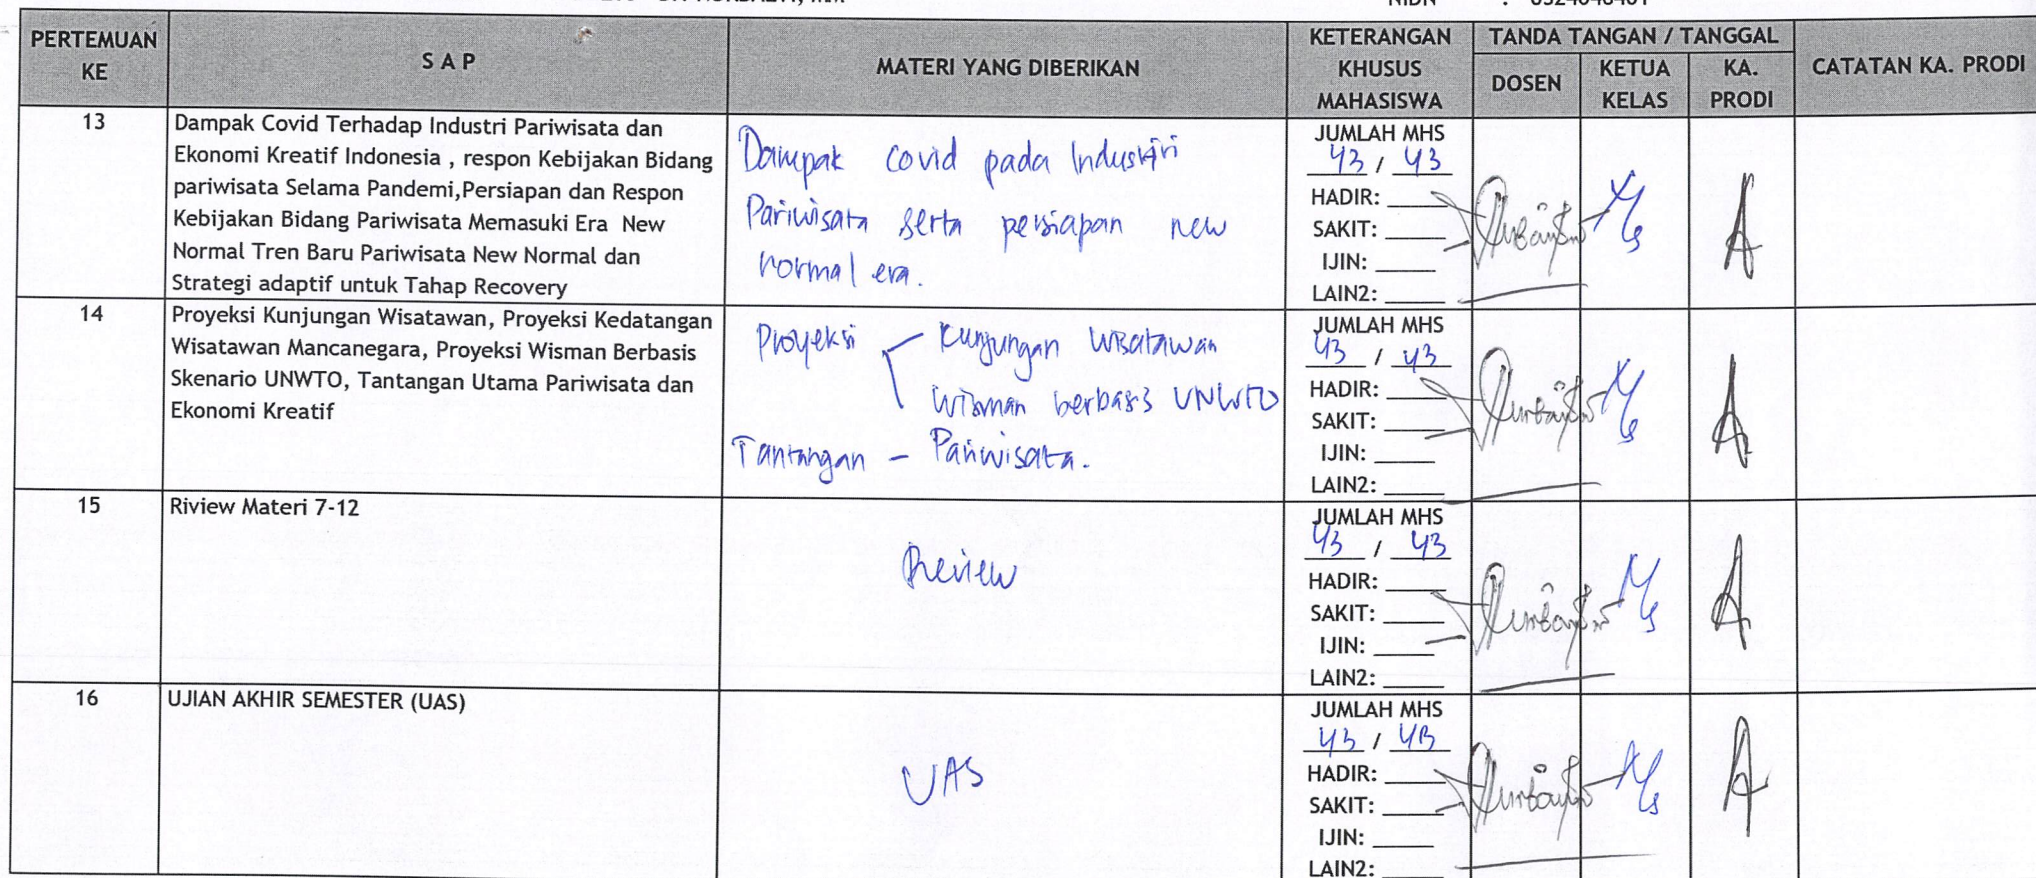 NIDN :
PERTEMUAN KE
S A P
MATERI YANG DIBERIKAN
KETERANGAN KHUSUS MAHASISWA
TANDA TANGAN / TANGGAL
DOSEN
KETUA KELAS
KA. PRODI
CATATAN KA. PRODI
13
Dampak Covid Terhadap Industri Pariwisata dan
Ekonomi Kreatif Indonesia , respon Kebijakan Bidang
pariwisata Selama Pandemi,Persiapan dan Respon
Kebijakan Bidang Pariwisata Memasuki Era New
Normal Tren Baru Pariwisata New Normal dan
Strategi adaptif untuk Tahap Recovery
Dampak covid pada Industri
Pariwisata serta persiapan new
normal era.
JUMLAH MHS
43 / 43
HADIR:
SAKIT:
IJIN:
LAIN2:
14
Proyeksi Kunjungan Wisatawan, Proyeksi Kedatangan
Wisatawan Mancanegara, Proyeksi Wisman Berbasis
Skenario UNWTO, Tantangan Utama Pariwisata dan
Ekonomi Kreatif
Proyeksi Kunjungan Wisatawan
Wisman berbasis UNWTO
Tantangan - Pariwisata.
JUMLAH MHS
43 / 43
HADIR:
SAKIT:
IJIN:
LAIN2:
15
Riview Materi 7-12
Review
JUMLAH MHS
43 / 43
HADIR:
SAKIT:
IJIN:
LAIN2:
16
UJIAN AKHIR SEMESTER (UAS)
UAS
JUMLAH MHS
43 / 43
HADIR:
SAKIT:
IJIN:
LAIN2: